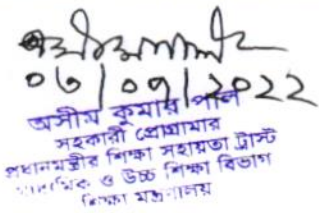 ০৬/০৭/2022
অসীম কুমার পাল
সহকারী প্রোগ্রামার
প্রধানমন্ত্রীর শিক্ষা সহায়তা ট্রাস্ট
মাধ্যমিক ও উচ্চ শিক্ষা বিভাগ
শিক্ষা মন্ত্রণালয়